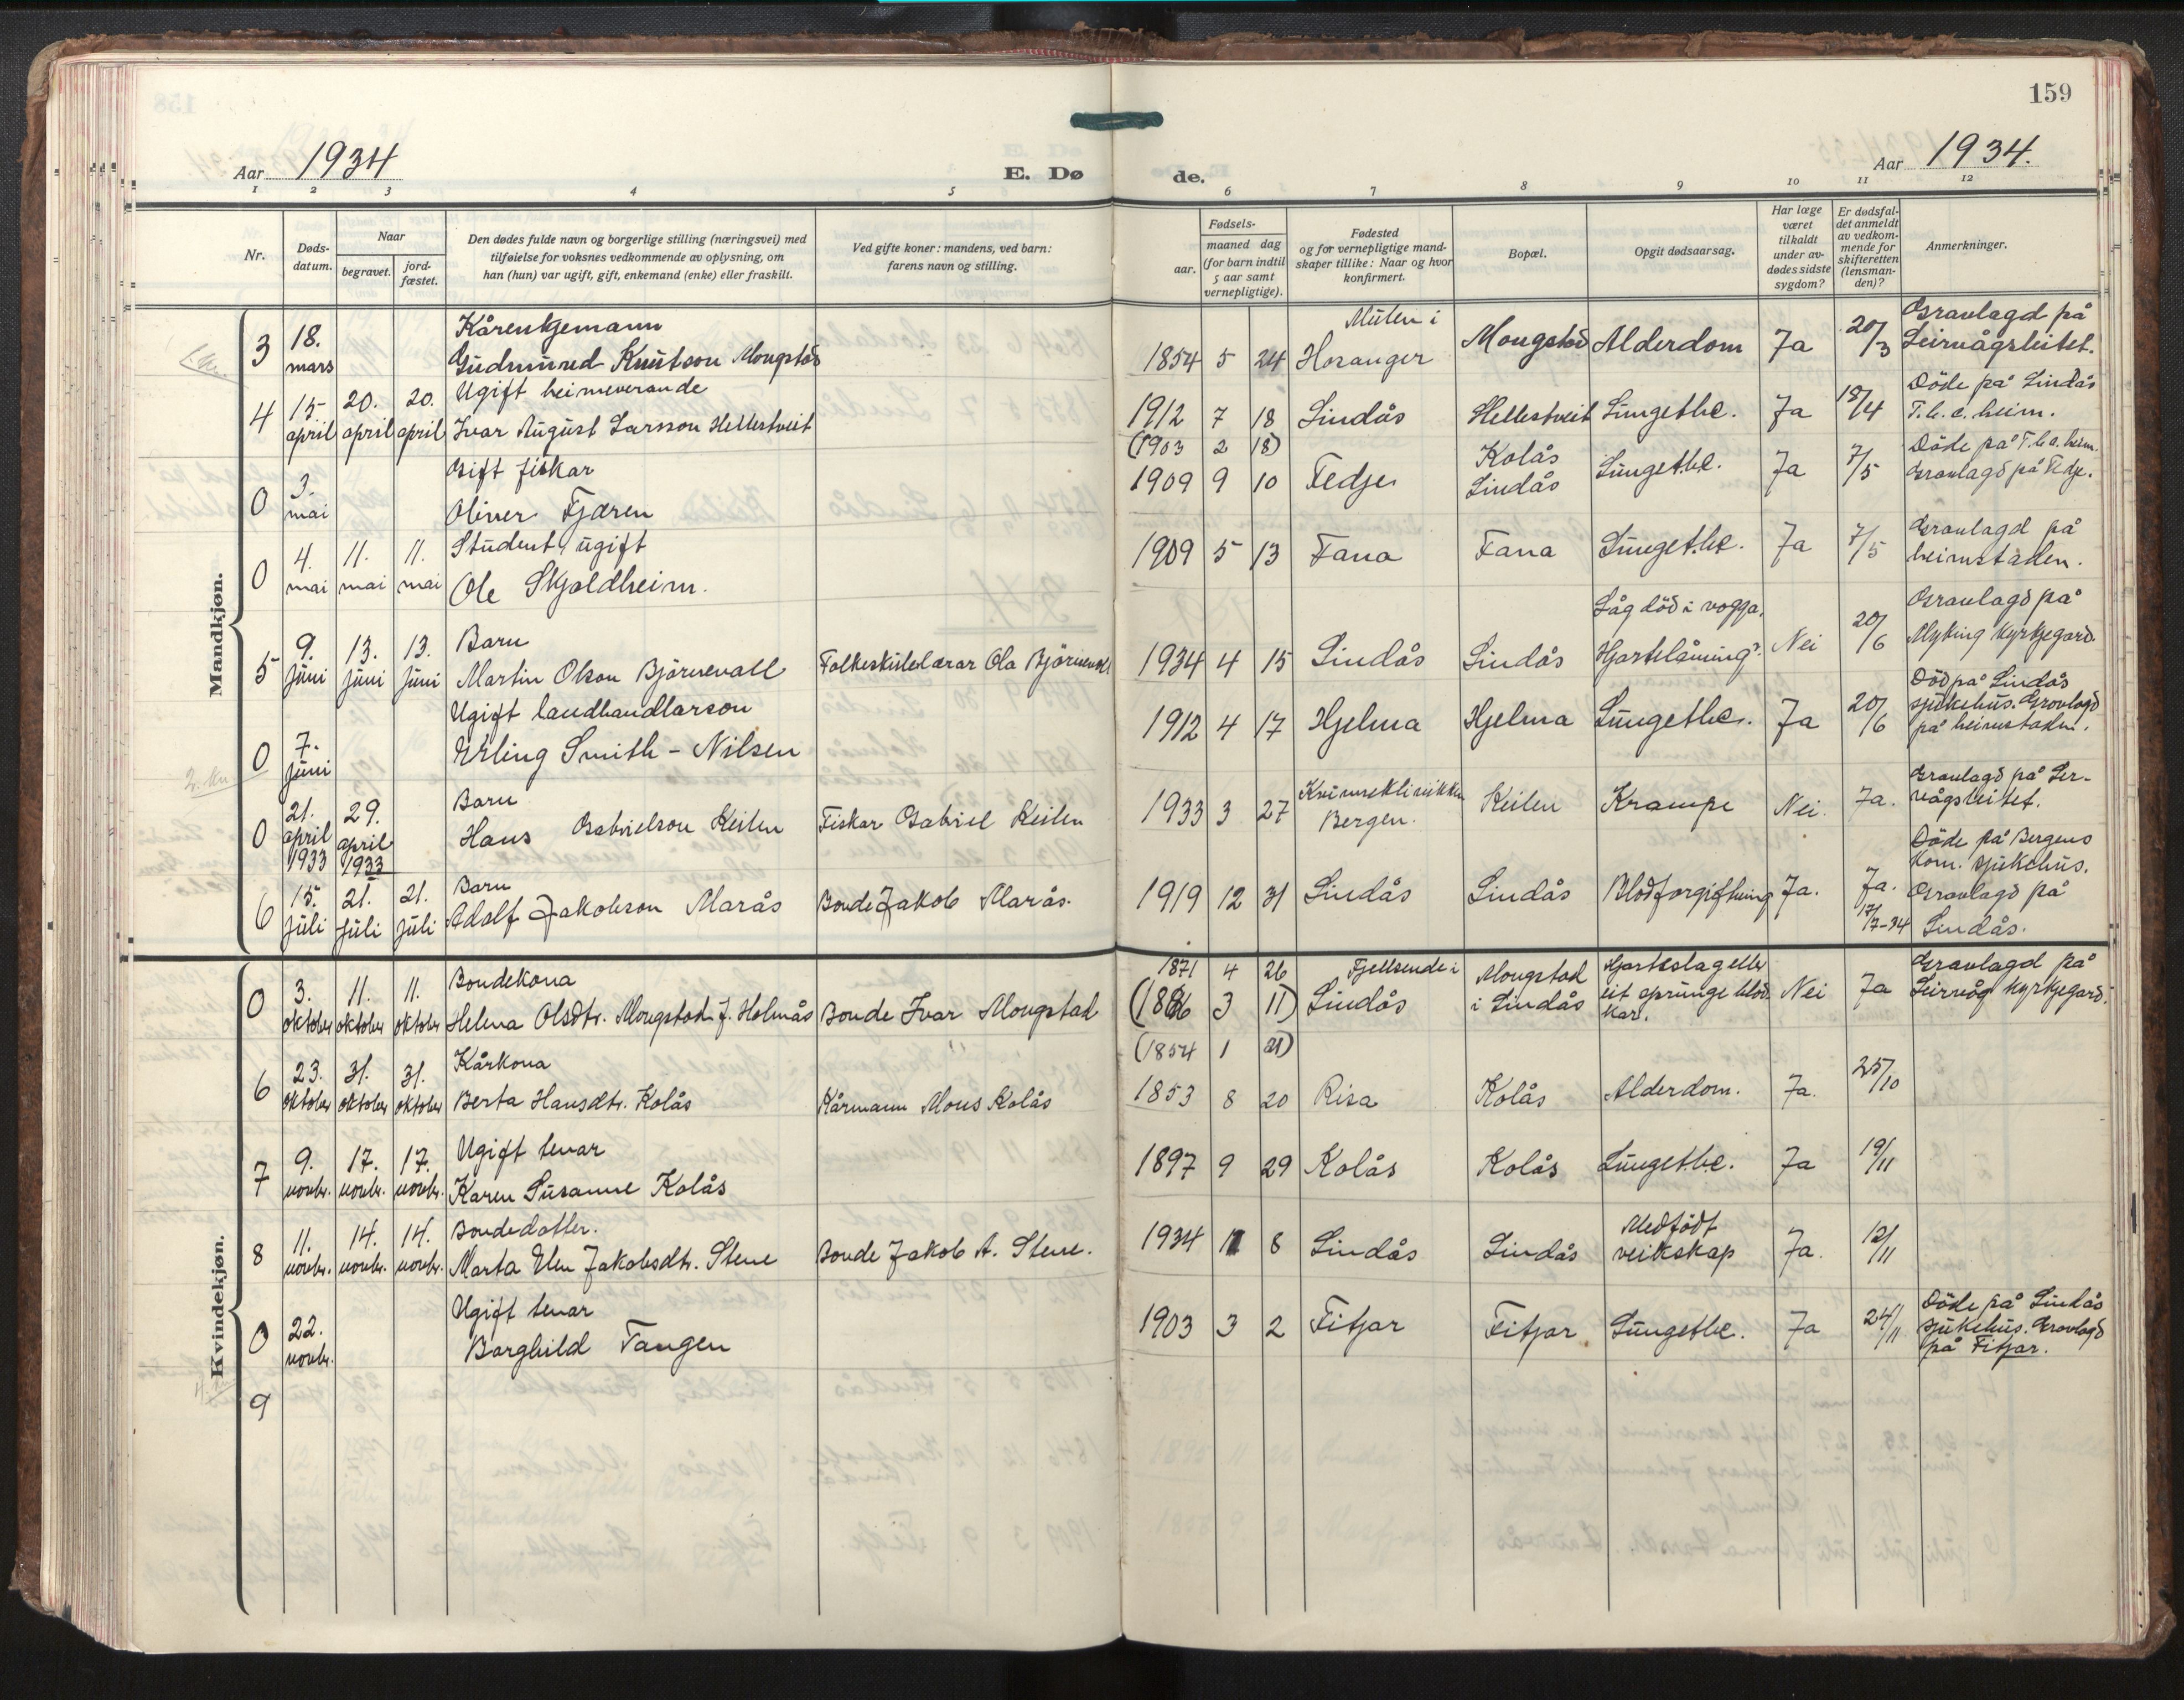 159
Aar 1934
E. Dø
de.
Aar 1934.
1 2 3 4 5 6 7 8 9 10 11 12
Nr.
Døds-
datum.
Naar
begravet.
jord-
fæstet.
Den dødes fulde navn og borgerlige stilling (næringsvei) med
tilføielse for voksnes vedkommende av oplysning, om
han (hun) var ugift, gift, enkemand (enke) eller fraskilt.
Ved gifte koner: mandens, ved barn:
farens navn og stilling.
Fødsels-
aar.
maaned dag
(for barn indtil
5 aar samt
vernepligtige).
Fødested
og for vernepligtige mand-
skaper tillike: Naar og hvor
konfirmert.
Bopæl.
Opgit dødsaarsag.
Har læge
været
tilkaldt
under av-
dødes sidste
sygdom?
Er dødsfal-
det anmeldt
av vedkom-
mende for
skifteretten
(lensman-
den)?
Anmerkninger.
Mandkjøn.
3 18. mars
Kårenkjemann
Gudmund Knutson Mongstad
1854 5 24
Mulen i
Hosanger
Mongstad
Alderdom
Ja
20/3
Gravlagd på
Leirvågsleitet.
4 15. april 20. april 20. april
Ugift heimeverande
Ivar August Larsson Hellestveit
1912 7 18
Lindås
Hellestveit
Lungetbc.
Ja
18/4
Døde på Lindås
T.b.c. heim.
0 3. mai
Gift fiskar
Oliver Fjæren
(1903 2 18)
1909 9 10
Fedje
Kolås
Lindås
Lungetbc.
Ja
7/5
Døde på T.b.c. heim.
Gravlagd på Fedje.
0 4. mai 11. mai 11. mai
Student, ugift
Ole Skjoldheim.
1909 5 13
Fana
Fana
Lungetbc.
Ja
7/5
Gravlagd på
heimstaden.
5 9. juni 13. juni 13. juni
Barn
Martin Olson Bjørnevall
Folkeskulelærar Ola Bjørnevoll
1934 4 15
Lindås
Lindås
Låg död i vogga.
Hjartelåming?
Nei
20/6
Gravlagd på
Myking kyrkjegard
0 7. juni
Ugift landhandlarson
Erling Smith - Nilsen
1912 4 17
Hjelma
Hjelma
Lungetbc.
Ja
20/6
Död på Lindås
sjukehus. Gravlagd
på heimstaden.
0 21. april 1933 29. april 1933
Barn
Hans Gabrielson Keilen
Fiskar Gabriel Keilen
1933 3 27
Kvinneklinikken
Bergen.
Keilen
Krampe
Nei.
Ja.
Gravlagd på Ler-
vågsleitet.
6 15. juli 21. juli 21. juli
Barn
Adolf Jakobson Marås
Bonde Jakob Marås.
1919 12 31
Lindås
Lindås
Blodforgiftning
Ja.
Ja.
17/7-34
Døde på Bergens
Kom. sjukehus.
Gravlagd på
Lindås.
Kvindekjøn.
0 3. oktober 11. oktober 11. oktober
Bondekona
Helena Olsdtr. Mongstad f. Holmås
Bonde Ivar Mongstad
1871 4 26
(1886 3 11)
Fjellsende i
Lindås
Mongstad
i Lindås
Hjarteslag eller
eit sprunge blod
kar.
Nei
Ja
Gravlagd på
Leirvåg kyrkjegard.
6 23. oktober 31. oktober 31. oktober
Kårkona
Berta Hansdtr. Kolås
Kårmann Mons Kolås
(1854 1 21)
1853 8 20
Risa
Kolås
Alderdom.
Ja.
25/10
7 9. novbr. 17. novbr. 17. novbr.
Ugift tenar
Karen Susanne Kolås
1897 9 29
Kolås
Kolås
Lungetbc.
Ja
19/11
8 11. novbr. 14. novbr. 14. novbr.
Bondedotter.
Marta Elen Jakobsdtr. Stene
Bonde Jakob A. Stene.
1934 11 8
Lindås
Lindås
Medfødt
veikskap
Ja.
12/11
0 22. novbr.
Ugift tenar
Borghild Tangen
1903 3 2
Fitjar
Fitjar
Lungetbc.
Ja
24/11
Døde på Lindås
sjukehus. Gravlagd
på Fitjar.
9